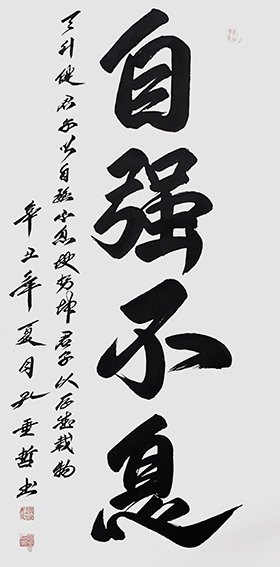 自强不息
天行健君子以自强不息地势坤君子以厚德载物
辛丑年夏月孔垂哲书